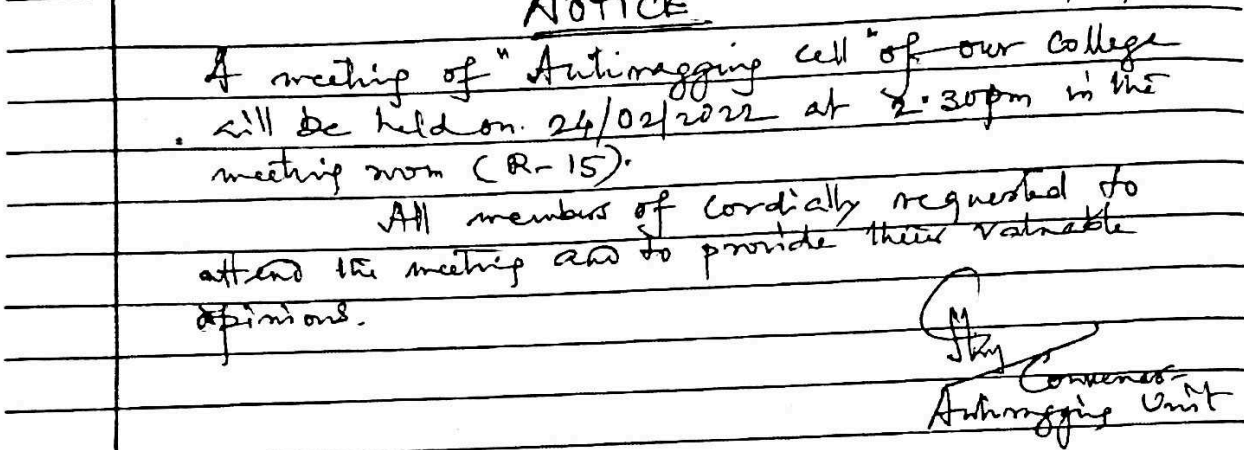 NOTICE
A meeting of "Antiragging cell" of our college
will be held on. 24/02/2022 at 2.30pm in the
meeting room (R-15).
All members of cordially requested to
attend the meeting and to provide their valuable
opinions.
Convenor
Antiragging Unit